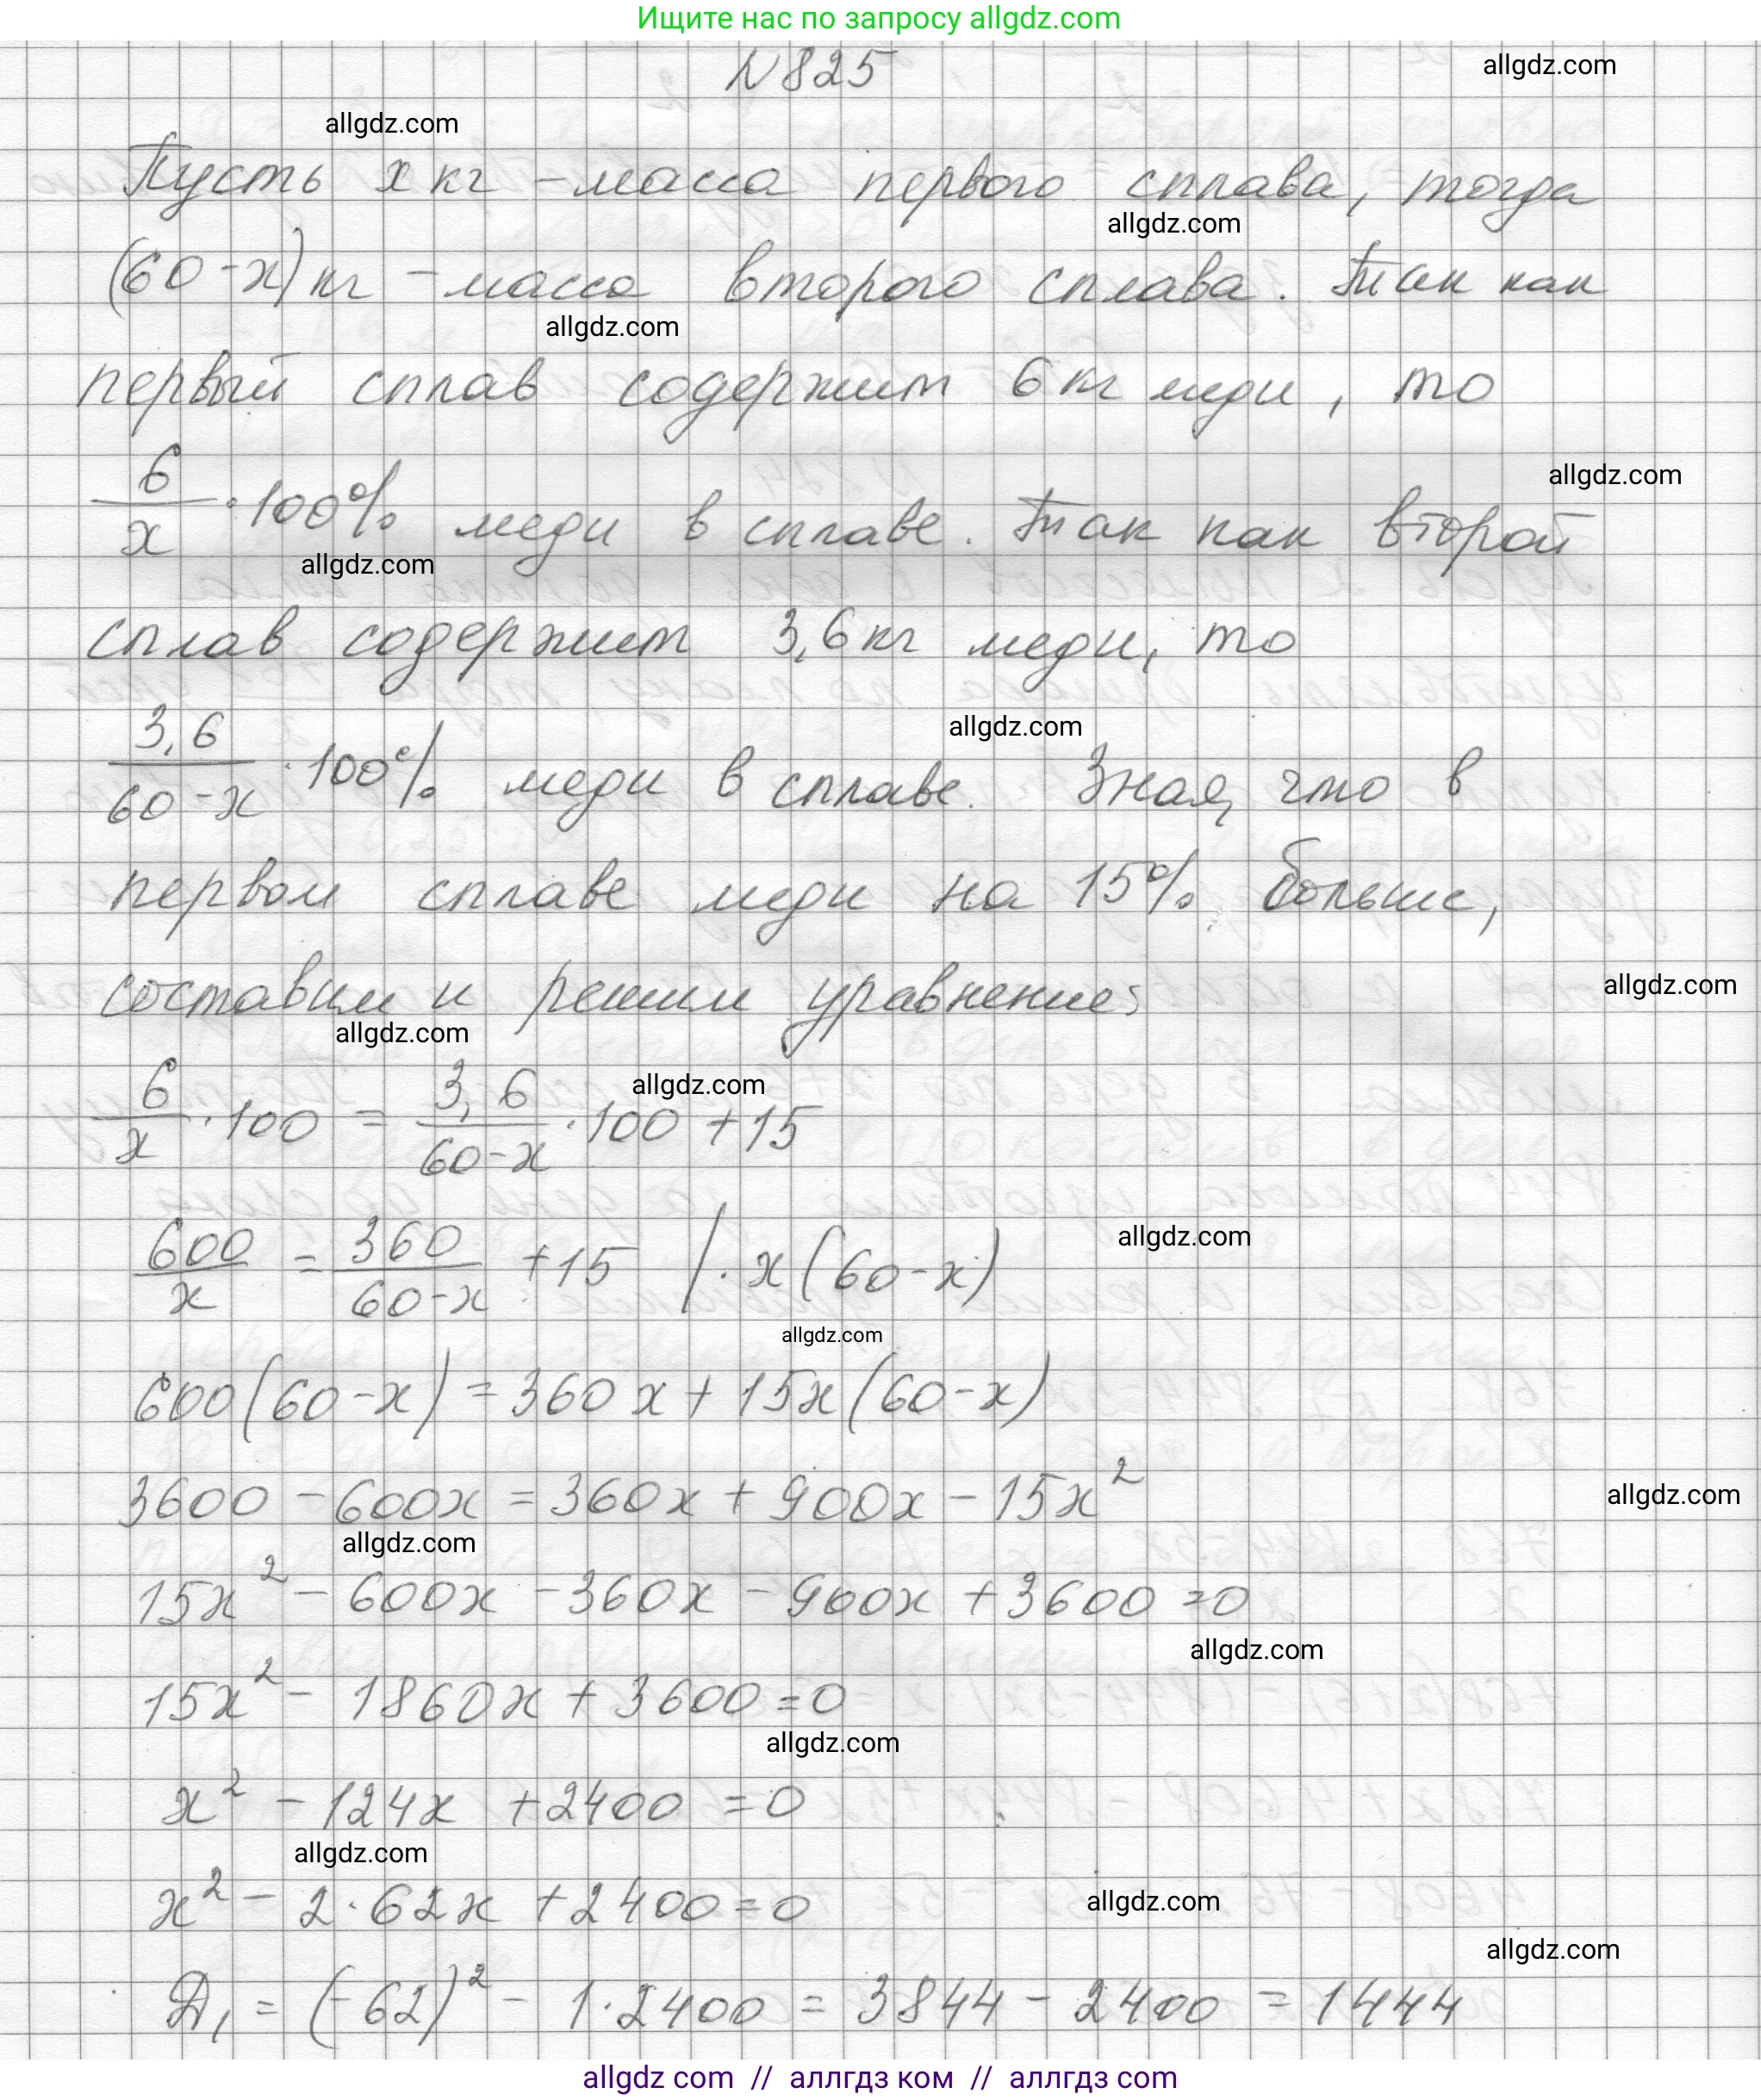 Ищите нас по запросу allgdz.com
N825
allgdz.com
allgdz.com
Пусть x кг - масса первого сплава, тогда
allgdz.com
(60-x) кг - масса второго сплава. Так как
allgdz.com
первый сплав содержит 6 кг меди, то
allgdz.com
6/x · 100% меди в сплаве. Так как второй
allgdz.com
сплав содержит 3,6 кг меди, то
allgdz.com
3,6/(60-x) · 100% меди в сплаве. Зная, что в
первом сплаве меди на 15% больше,
allgdz.com
составим и решим уравнение:
allgdz.com
allgdz.com
6/x · 100 = 3,6/(60-x) · 100 + 15
allgdz.com
600/x = 360/(60-x) + 15 | · x(60-x)
allgdz.com
600(60-x) = 360x + 15x(60-x)
allgdz.com
3600 - 600x = 360x + 900x - 15x²
allgdz.com
15x² - 600x - 360x - 900x + 3600 = 0
allgdz.com
15x² - 1860x + 3600 = 0
allgdz.com
x² - 124x + 2400 = 0
allgdz.com
x² - 2·62x + 2400 = 0
allgdz.com
allgdz.com
Д₁ = (-62)² - 1·2400 = 3844 - 2400 = 1444
allgdz.com // аллгдз ком // аллгдз com